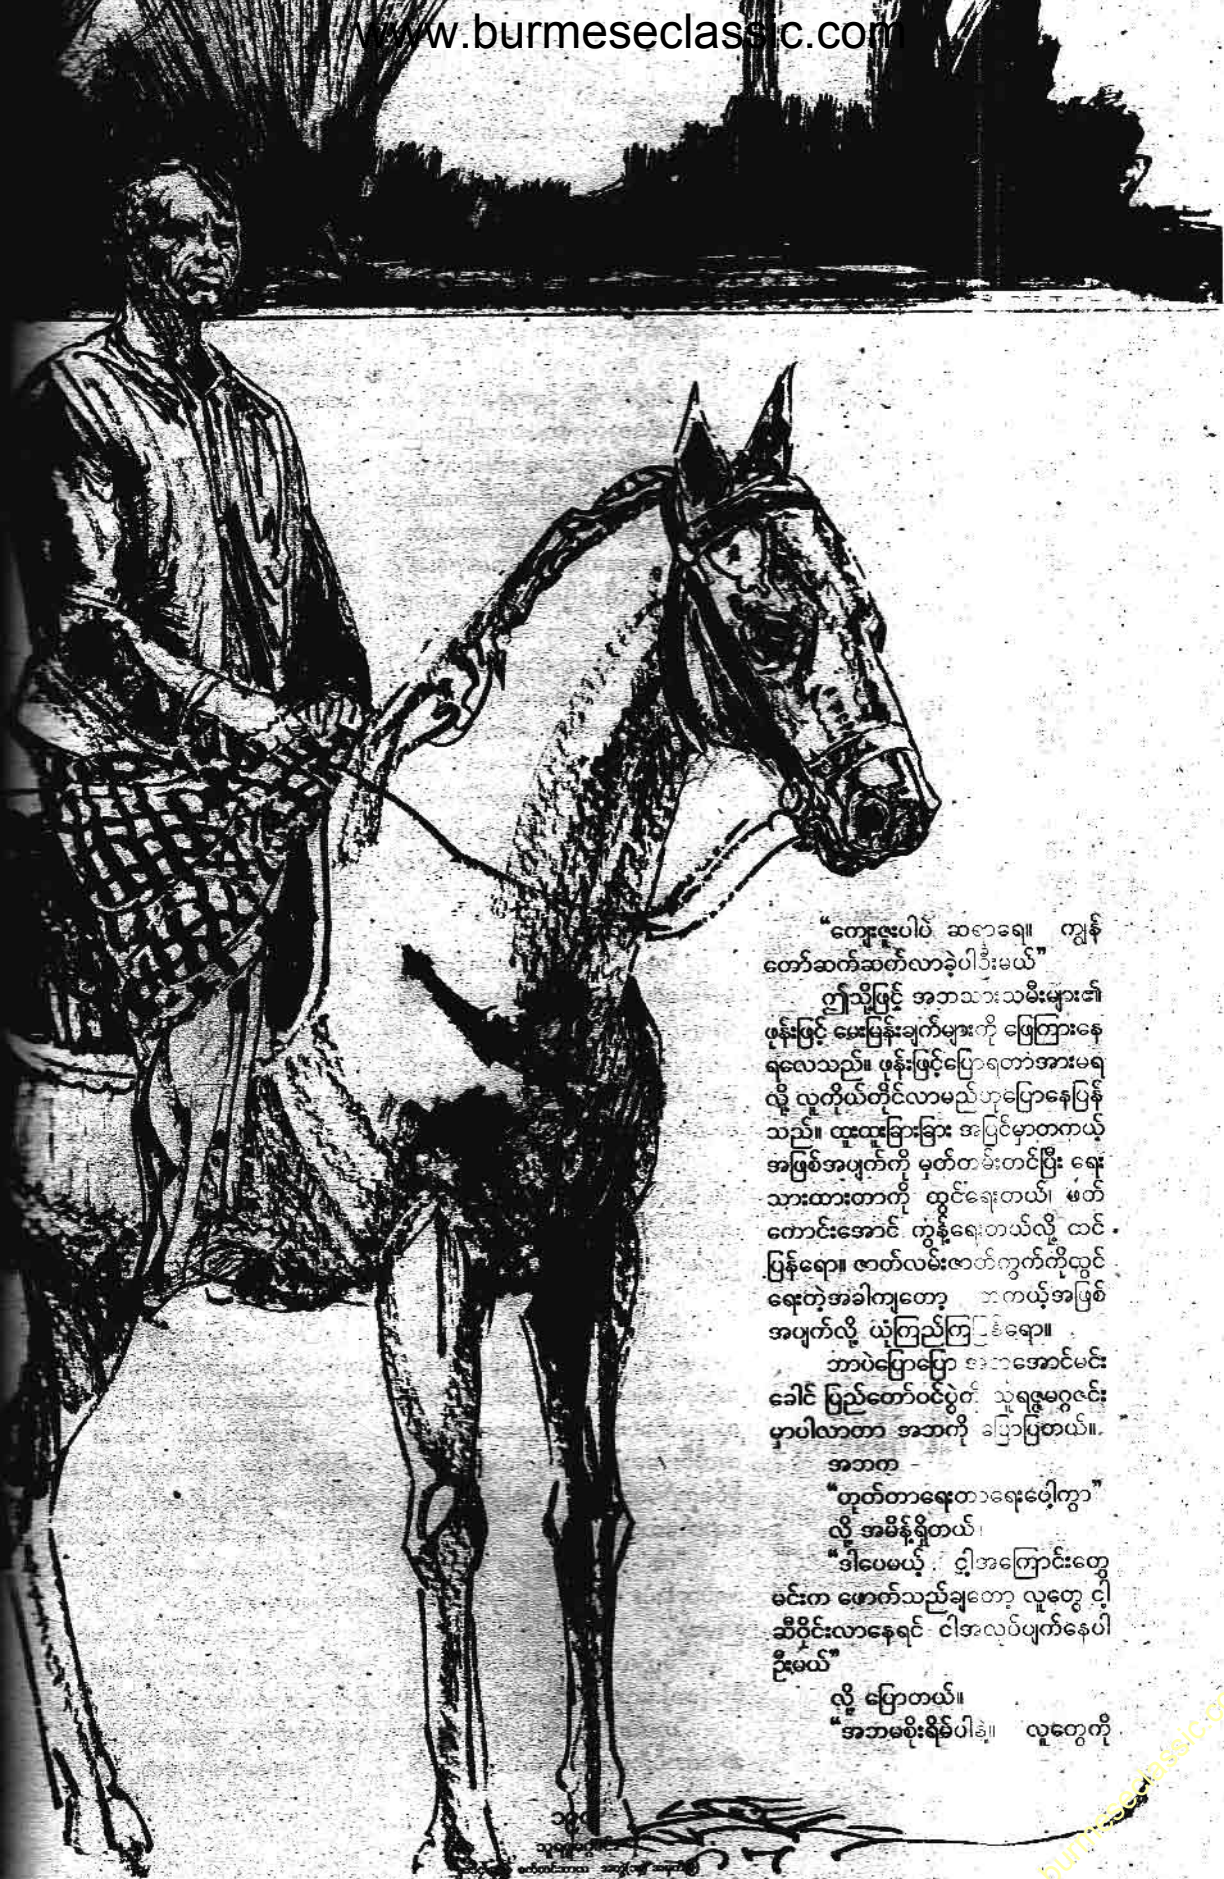 www.burmeseclassic.com
“ကျေးဇူးပါပဲ ဆရာရေ။ ကျွန်
တော်ဆက်ဆက်လာခဲ့ပါဦးမယ်”
ဤသို့ဖြင့် အဘသားသမီးများ၏
ဖုန်းဖြင့် မေးမြန်းချက်များကို ဖြေကြားနေ
ရလေသည်။ ဖုန်းဖြင့်ပြောရတာအားမရ
လို့ လူကိုယ်တိုင်လာမည်ဟုပြောနေပြန်
သည်။ ထူးထူးခြားခြား အပြင်မှာတကယ့်
အဖြစ်အပျက်ကို မှတ်တမ်းတင်ပြီး ရေး
သားထားတာကို ထွင်ရေးတယ်၊ ဖတ်
ကောင်းအောင် ကွန့်ရေးတယ်လို့ ထင်
ပြန်ရော။ ဇာတ်လမ်းဇာတ်ကွက်ကိုထွင်
ရေးတဲ့အခါကျတော့ တကယ့်အဖြစ်
အပျက်လို့ ယုံကြည်ကြပြန်ရော။
ဘာပဲပြောပြော အဘအောင်မင်း
ခေါင် ပြည်တော်ဝင်ပွဲကို သူရဇ္ဇမဂ္ဂဇင်း
မှာပါလာတာ အဘကို ပြောပြတယ်။
အဘက
“ဟုတ်တာရေးတာရေးပေါ့ကွာ”
လို့ အမိန့်ရှိတယ်၊
“ဒါပေမယ့် ငါ့အကြောင်းတွေ
မင်းက ဖောက်သည်ချတော့ လူတွေ ငါ့
ဆီဝိုင်းလာနေရင် ငါအလုပ်ပျက်နေပါ
ဦးမယ်”
လို့ ပြောတယ်။
“အဘမစိုးရိမ်ပါနဲ့။ လူတွေကို
burmeseclassic.c